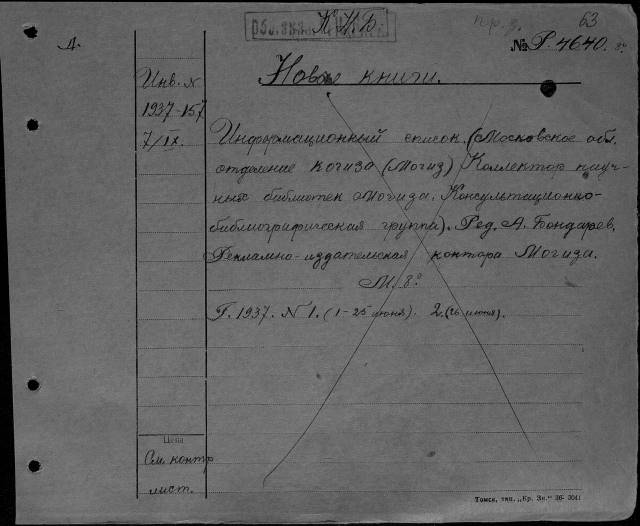 К.И.Б.
пр. з.
63
Д.
№ Р. 4640.
Новые книги.
Инв. N
1937-157
7/IX.
Информационный список. (Московское обл.
отделение Когиза (Могиз) Коллектор науч-
ных библиотек Могиза. Консультационно-
библиографическая группа). Ред. А. Бондарев.
Рекламно-издательская контора Могиза.
М. 8°
Г. 1937. N 1. (1-25 июня). 2. (26 июня).
Цена
См. контр
лист.
Томск, тип. „Кр. Зн." 36- 3041